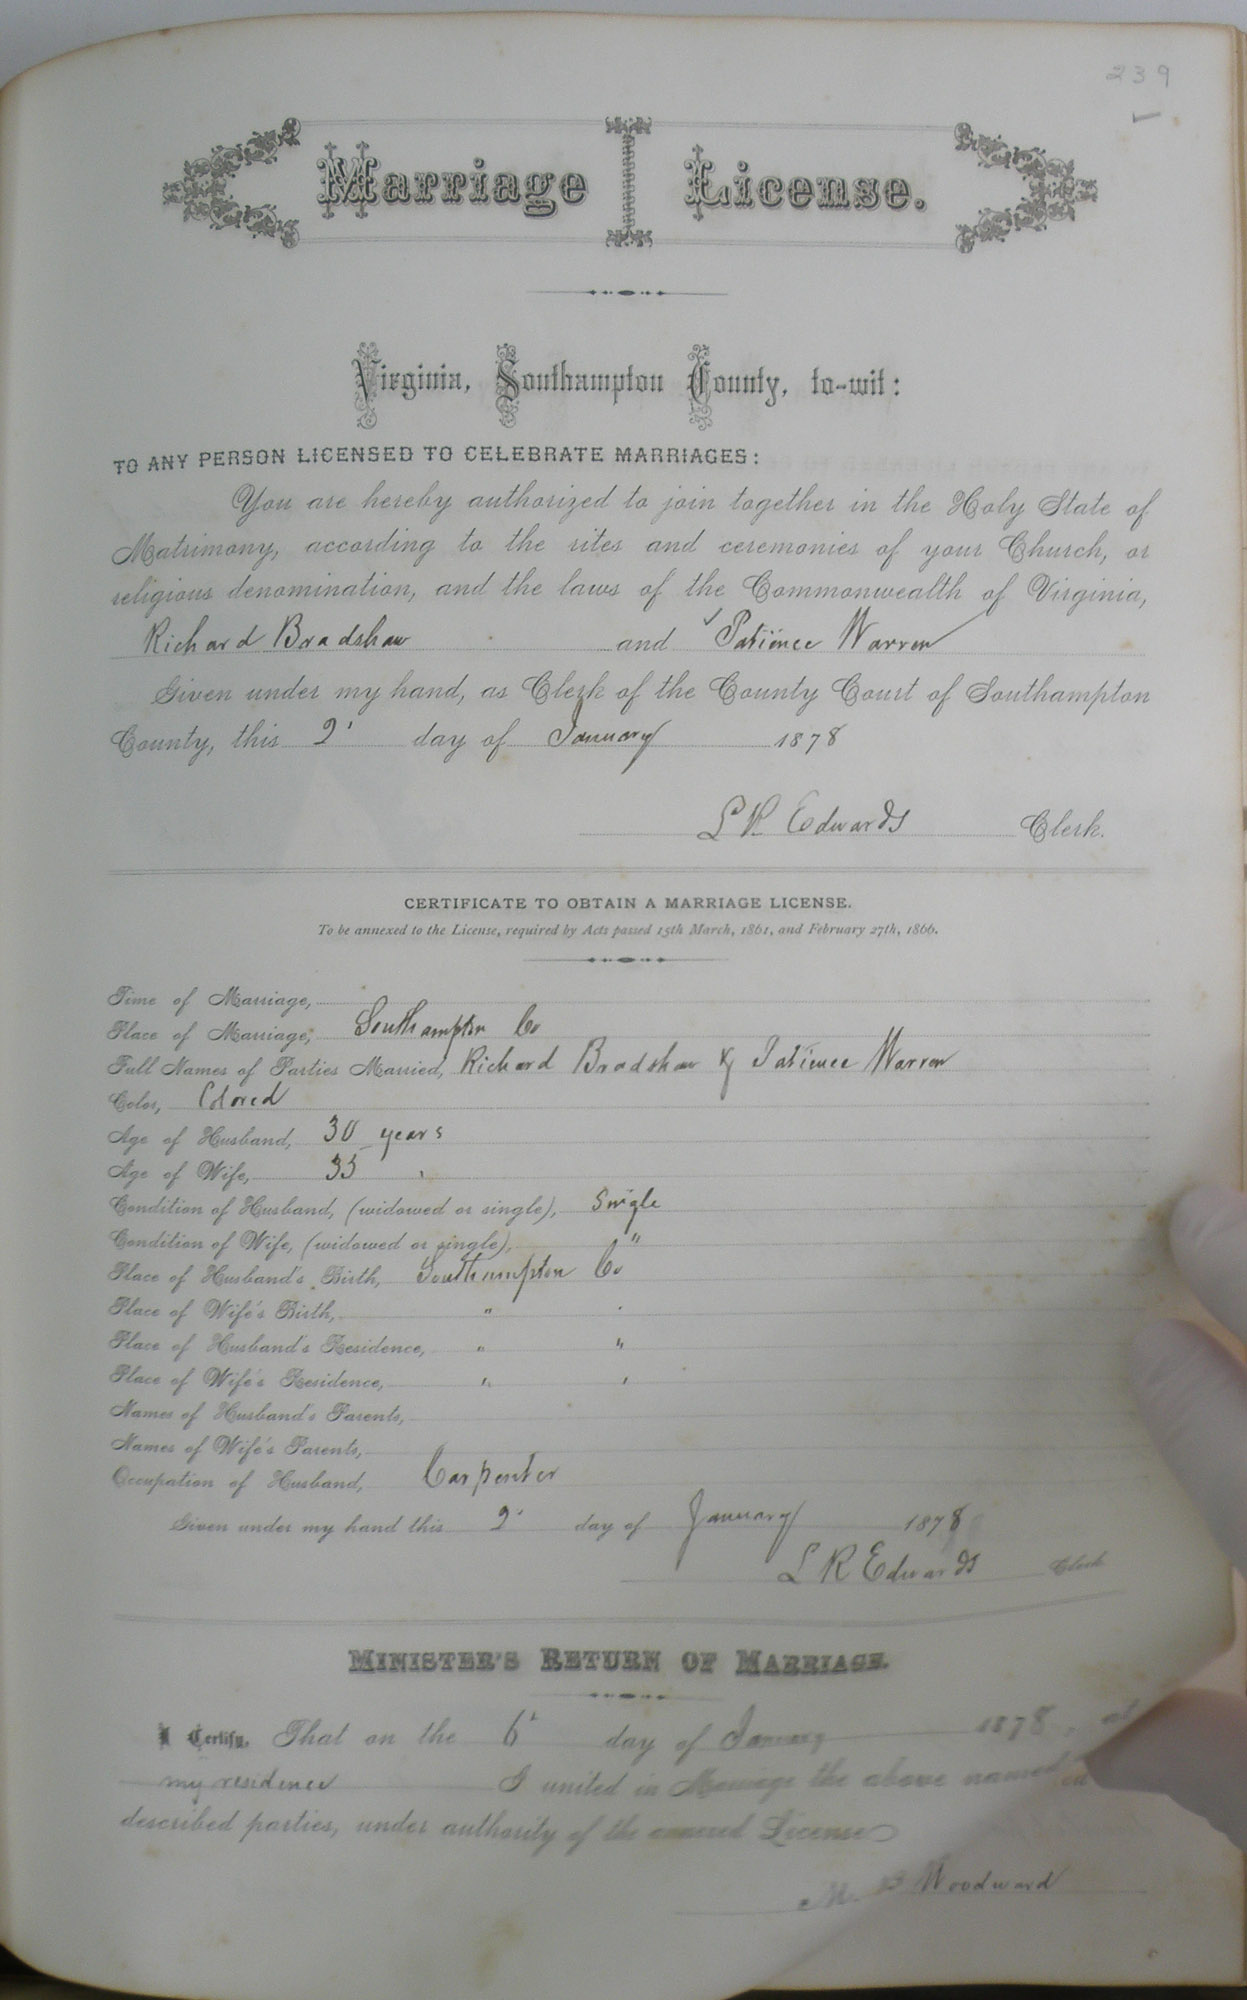 239
Marriage License.
Virginia, Southampton County, to-wit:
TO ANY PERSON LICENSED TO CELEBRATE MARRIAGES:
You are hereby authorized to join together in the Holy State of
Matrimony, according to the rites and ceremonies of your Church, or
religious denomination, and the laws of the Commonwealth of Virginia,
Richard Bradshaw and Patience Warren
Given under my hand, as Clerk of the County Court of Southampton
County, this 2' day of January 1878
L R Edwards Clerk.
CERTIFICATE TO OBTAIN A MARRIAGE LICENSE.
To be annexed to the License, required by Acts passed 15th March, 1861, and February 27th, 1866.
Time of Marriage,
Place of Marriage, Southampton Co
Full Names of Parties Married, Richard Bradshaw & Patience Warren
Color, Colored
Age of Husband, 30 years
Age of Wife, 33 "
Condition of Husband, (widowed or single), Single
Condition of Wife, (widowed or single), "
Place of Husband's Birth, Southampton Co
Place of Wife's Birth, " "
Place of Husband's Residence, " "
Place of Wife's Residence, " "
Names of Husband's Parents,
Names of Wife's Parents,
Occupation of Husband, Carpenter
Given under my hand this 2' day of January 1878
L R Edwards Clerk
MINISTER'S RETURN OF MARRIAGE.
I Certify, That on the 6' day of January 1878, at
my residence I united in Marriage the above named
described parties, under authority of the annexed License
M. B Woodward